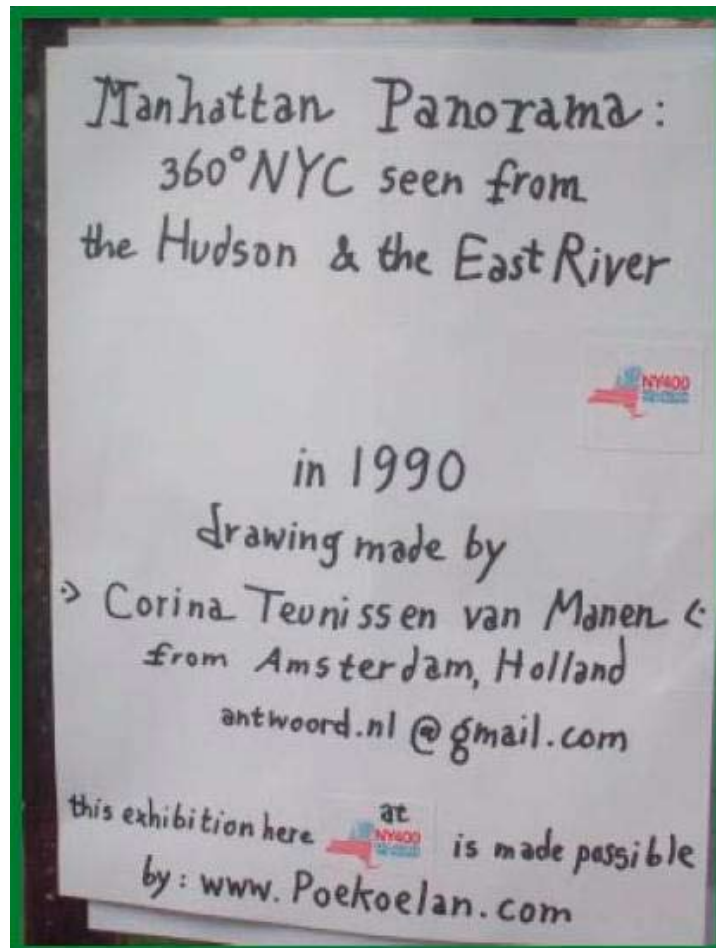 Manhattan Panorama:
360° NYC seen from
the Hudson & the East River
NY400
in 1990
drawing made by
:> Corina Teunissen van Manen <:
from Amsterdam, Holland
antwoord.nl @ gmail.com
this exhibition here at NY400 is made possible
by: www.Poekoelan.com